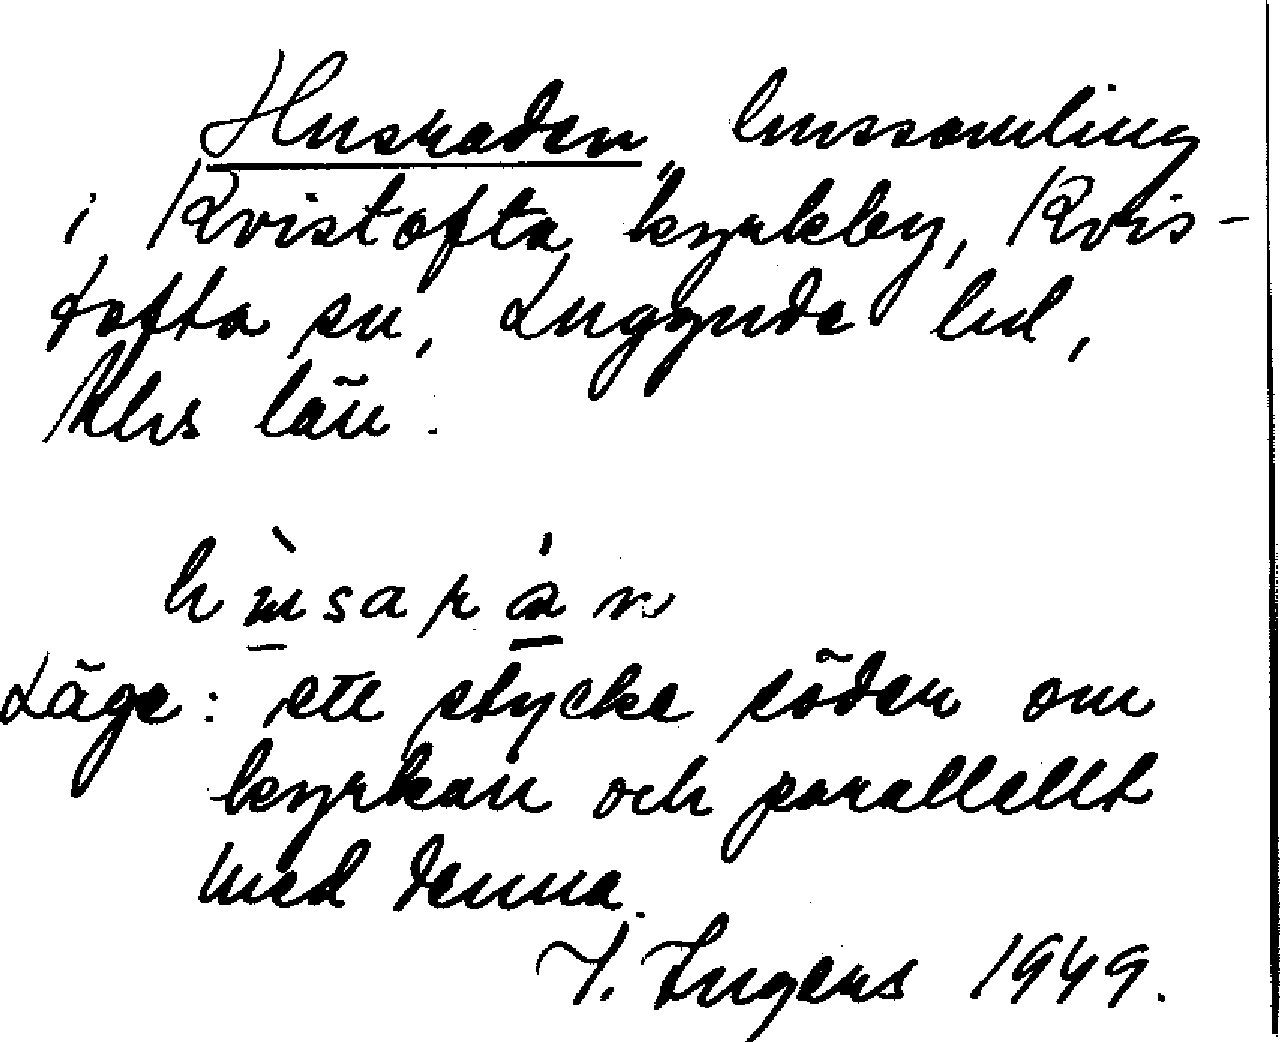 Husraden, hussamling
i Kvistofta kyrkby, Kvis-
tofta sn, Luggude hd,
Mlhs län.
Läge: ett stycke söder om
kyrkan och parallellt
med denna.
I. Ingers 1949.